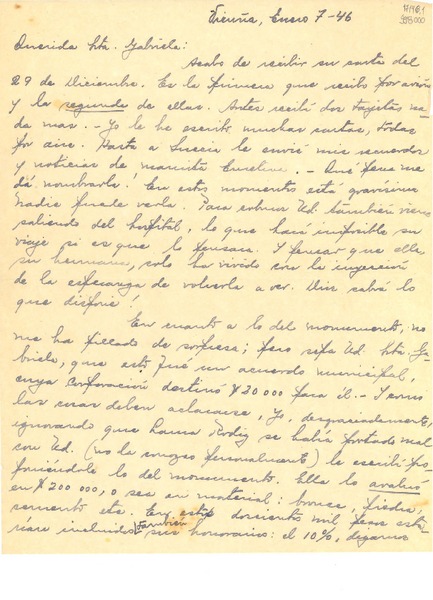 Vicuña, Enero 7-46
Querida Srta. Gabriela:
Acabo de recibir su carta del
29 de Diciembre. Es la primera que recibo por avión
y la segunda de ellas. Antes recibí dos tarjetas, na-
da mas. - Yo le he escrito muchas cartas, todas
por aire. Hasta a Suecia le envié mis recuerdos
y noticias de mamita Emelina. - Qué pena me
dá nombrarla! En estos momentos está gravísima
Nadie puede verla. Para colmo Ud. también viene
saliendo del hospital, lo que hará imposible su
viaje si es que lo pensara. I pensar que ella,
su hermana, solo ha vivido con la inyección
de la esperanza de volverla a ver. Dios sabrá lo
que dispone!
En cuanto a lo del monumento, no
me ha pillado de sorpresa; pero sepa Ud. Srta. Ga-
briela, que esto fué un acuerdo municipal,
cuya corporación destinó $ 20000 para él. - I como
las cosas deben aclararse, Yo, desgraciadamente,
ignorando que Laura Rodig se había portado mal
con Ud. (no la conozco personalmente) le escribí pro-
poniéndole lo del monumento. Ella lo avaluó
en $ 200 000, o sea en material: bronce, piedra,
cemento etc. En estos doscientos mil pesos esta-
rían incluidos también sus honorarios: el 10%, digamos